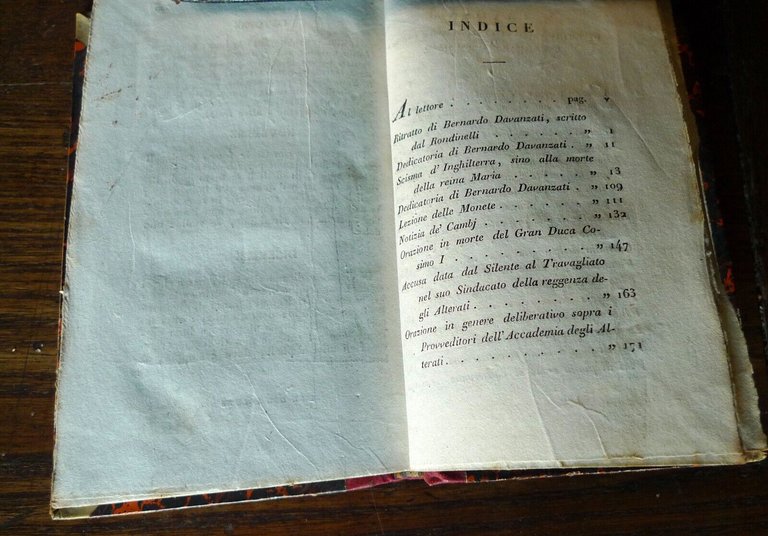 INDICE
Al lettore . . . . . . . . . pag. v
Ritratto di Bernardo Davanzati, scritto
dal Rondinelli . . . . . . . „ 1
Dedicatoria di Bernardo Davanzati . „ 11
Scisma d'Inghilterra, sino alla morte
della reina Maria . . . . . . „ 13
Dedicatoria di Bernardo Davanzati . „ 109
Lezione delle Monete . . . . . . „ 111
Notizia de' Cambj . . . . . . . „ 132
Orazione in morte del Gran Duca Co-
simo I . . . . . . . . . . „ 147
Accusa data dal Silente al Travagliato
nel suo Sindacato della reggenza de-
gli Alterati . . . . . . . . „ 163
Orazione in genere deliberativo sopra i
Provveditori dell'Accademia degli Al-
terati . . . . . . . . . . „ 171